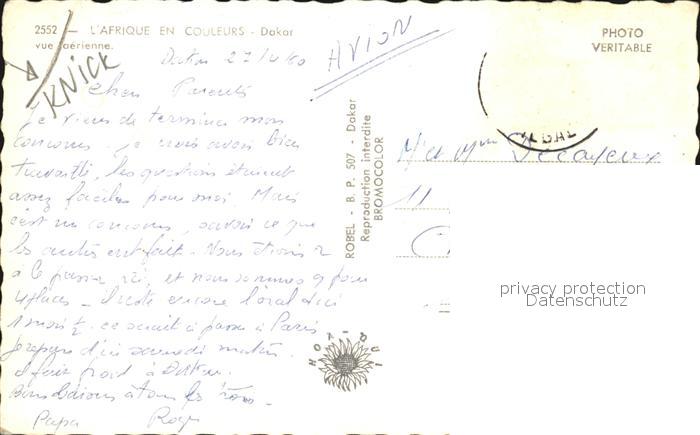 2552 — L'AFRIQUE EN COULEURS - Dakar
vue aérienne.
KNICK
AVION
PHOTO
VERITABLE
Dakar 27/4/60
Chers Parents
Je viens de terminer mon
concours je crois avoir bien
travaillé, les questions étaient
assez faciles pour moi. Mais
c'est un concours, savoir ce que
les autres ont fait. Nous étions
à le passer ici, et nous sommes 9 pour
4 places - Il reste encore l'oral d'ici
1 mois ½. ce serait à passer à Paris
d'ici samedi matin.
Il fait froid à Dakar.
Bons baisers à tous les
Papa Roger
ROBEL - B. P. 507 - Dakar
Reproduction interdite
BROMOCOLOR
11
privacy protection
Datenschutz